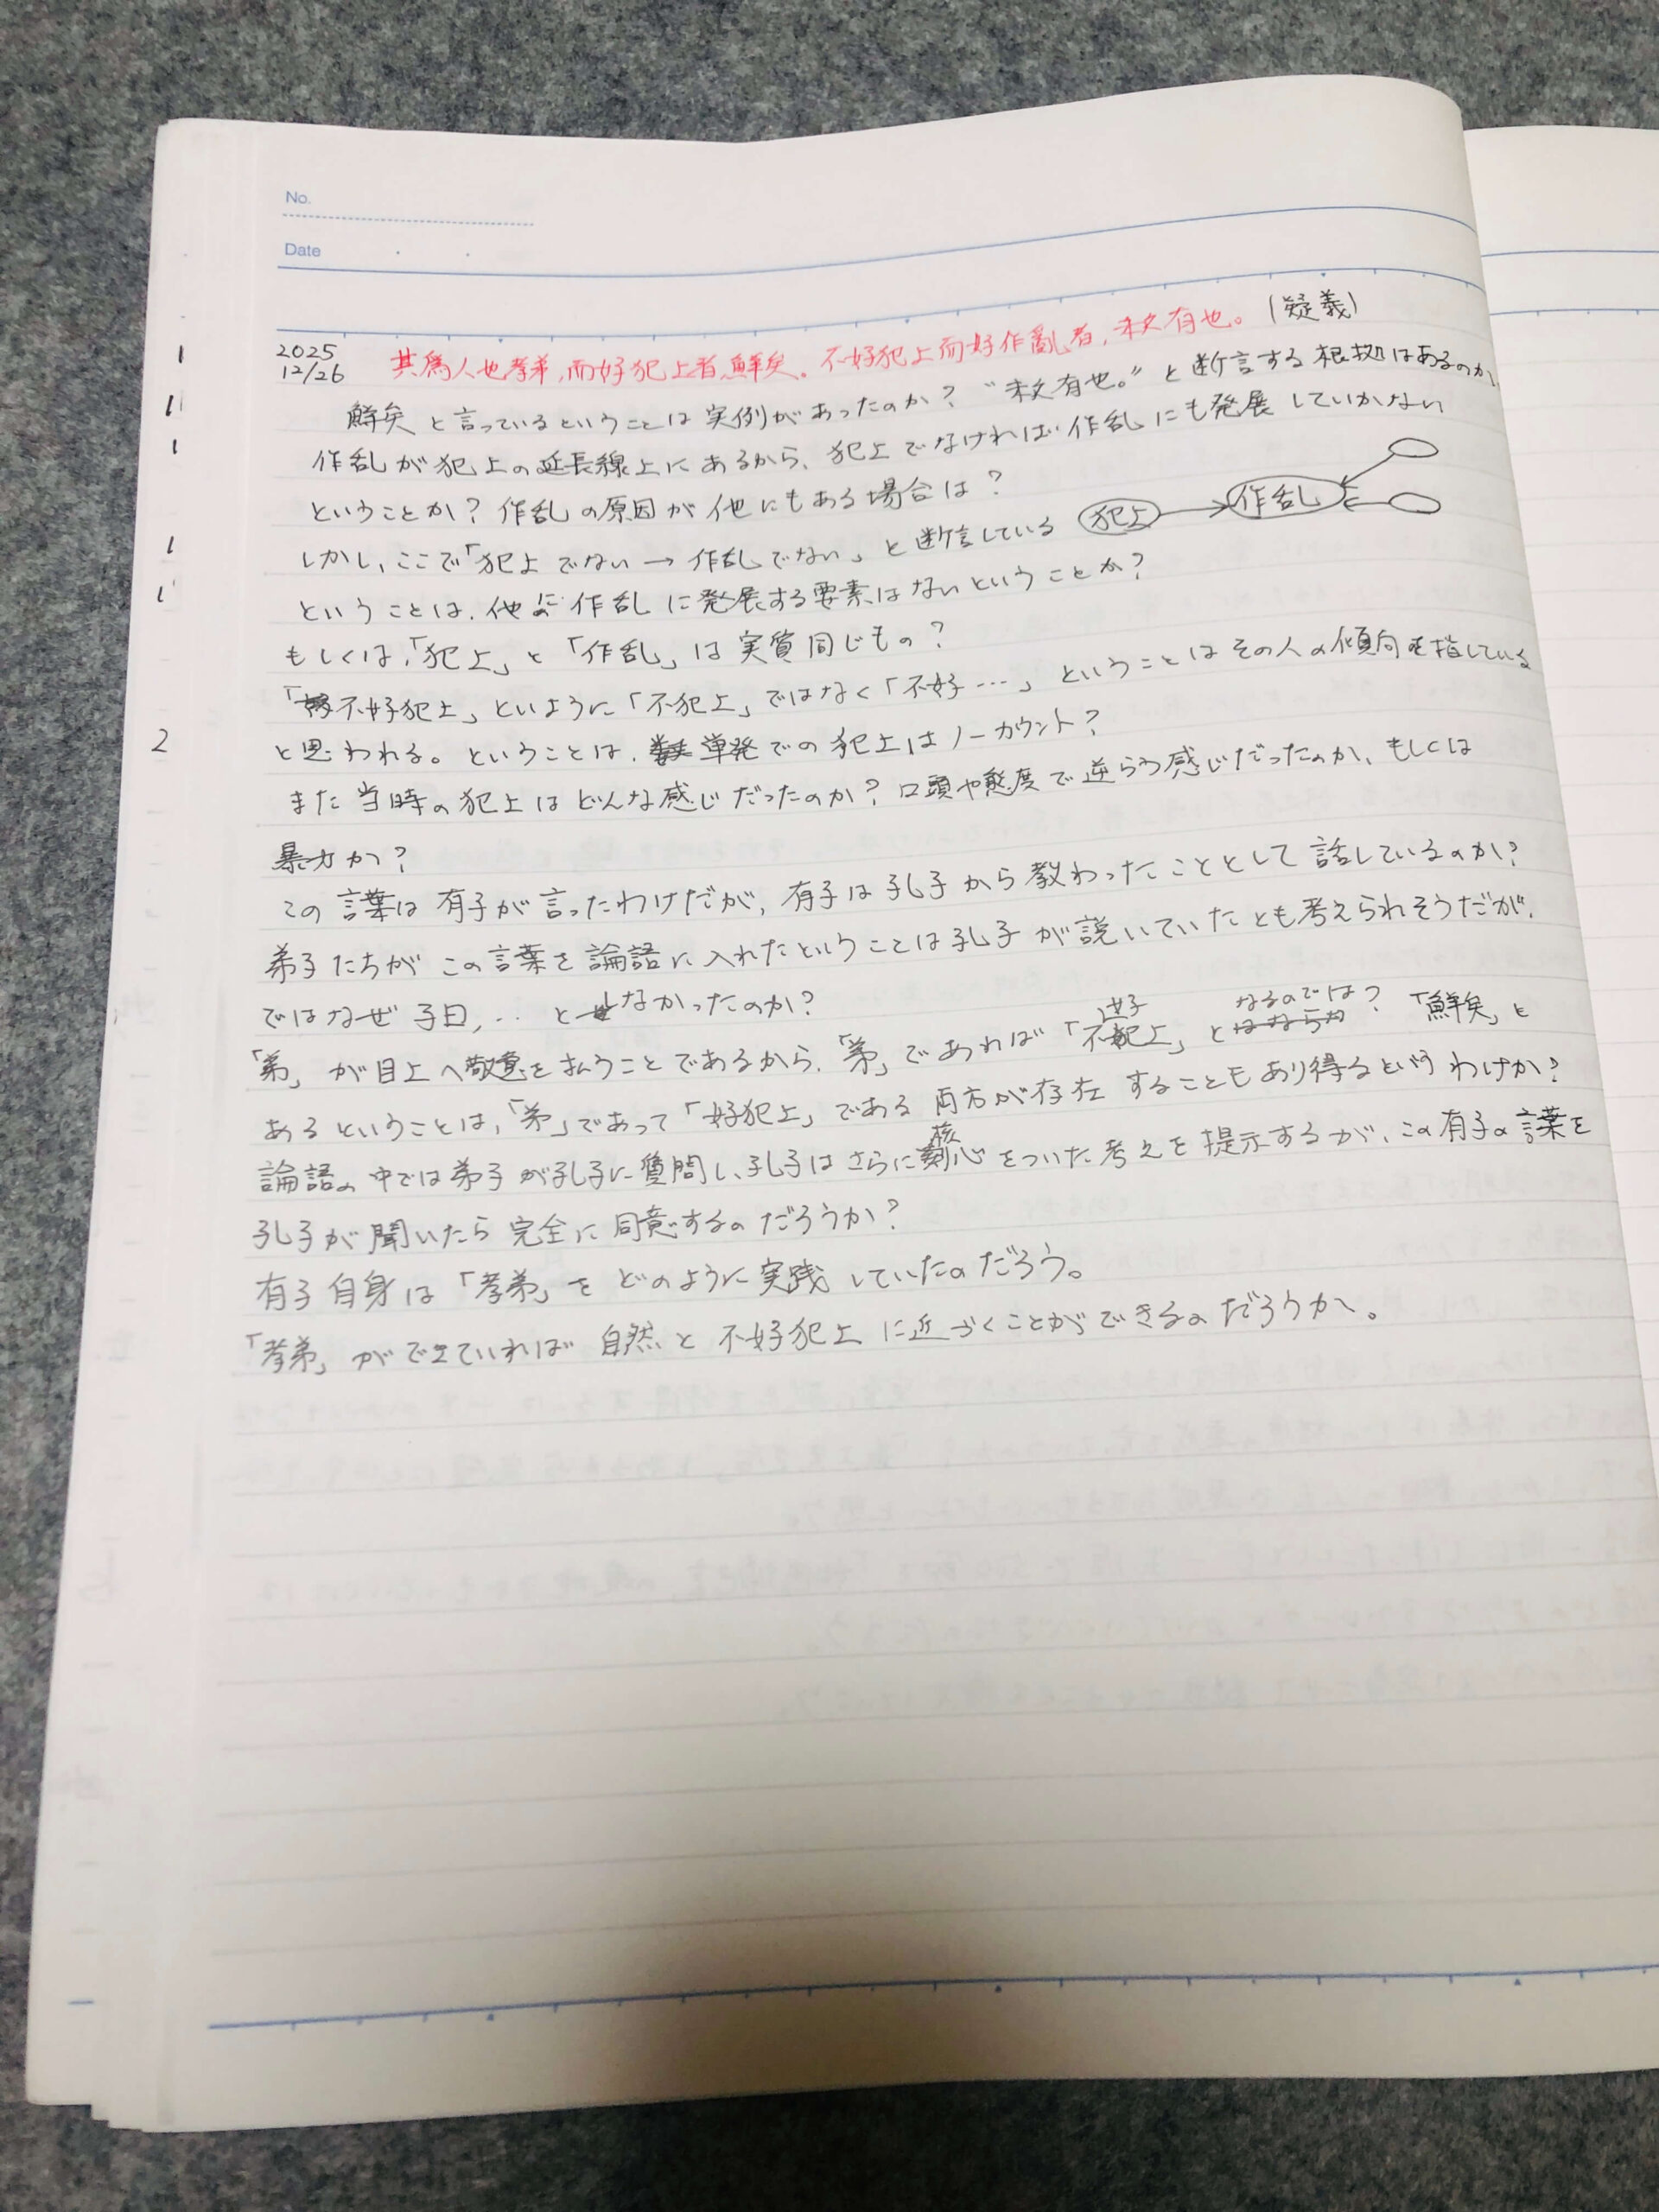 No.
Date
2025
12/26
其爲人也孝弟,而好犯上者,鮮矣。不好犯上而好作亂者,未之有也。(疑義)
鮮矣と言っているということは実例があったのか? "未之有也。"と断言する根拠はあるのか。
作乱が犯上の延長線上にあるから、犯上でなければ作乱にも発展していかない
ということか?作乱の原因が他にもある場合は?
犯上 → 作乱
しかし、ここで「犯上でない→作乱でない」と断言している
ということは、他に作乱に発展する要素はないということか?
もしくは、「犯上」と「作乱」は実質同じもの?
「不好犯上」といように「不犯上」ではなく「不好…」ということはその人の傾向を指している
と思われる。ということは、単発での犯上はノーカウント?
また当時の犯上はどんな感じだったのか?口頭や態度で逆らう感じだったのか、もしくは
暴力か?
この言葉は有子が言ったわけだが、有子は孔子から教わったこととして話しているのか?
弟子たちがこの言葉を論語に入れたということは孔子が説いていたとも考えられそうだが、
ではなぜ子曰,‥としなかったのか?
「弟」が目上へ敬意を払うことであるから、「弟」であれば「不好犯上」となるのでは?「鮮矣」と
あるということは、「弟」であって「好犯上」である両方が存在することもあり得るというわけか?
論語の中では弟子が孔子に質問し、孔子はさらに核心をついた考えを提示するが、この有子の言葉を
孔子が聞いたら完全に同意するのだろうか?
有子自身は「孝弟」をどのように実践していたのだろう。
「孝弟」ができていれば自然と不好犯上に近づくことができるのだろうか。